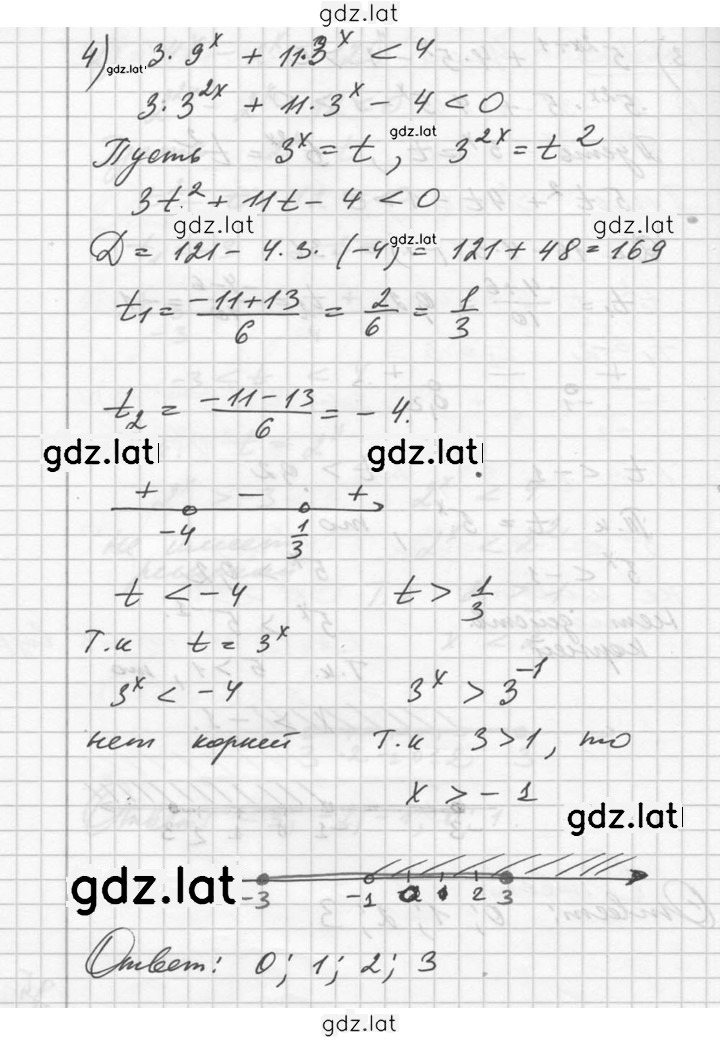 gdz.lat
4) 3·9ˣ + 11·3ˣ < 4
gdz.lat
3·3²ˣ + 11·3ˣ − 4 < 0
gdz.lat
Пусть 3ˣ = t, 3²ˣ = t²
3t² + 11t − 4 < 0
gdz.lat gdz.lat gdz.lat
D = 121 − 4·3·(−4) = 121 + 48 = 169
t₁ = (−11+13)/6 = 2/6 = 1/3
t₂ = (−11−13)/6 = −4.
gdz.lat gdz.lat
+ − +
−4 1/3
t < −4 t > 1/3
т.к t = 3ˣ
3ˣ < −4 3ˣ > 3⁻¹
нет корней т.к 3>1, то
x > −1
gdz.lat
gdz.lat
−3 −1 0 1 2 3
Ответ: 0; 1; 2; 3
gdz.lat